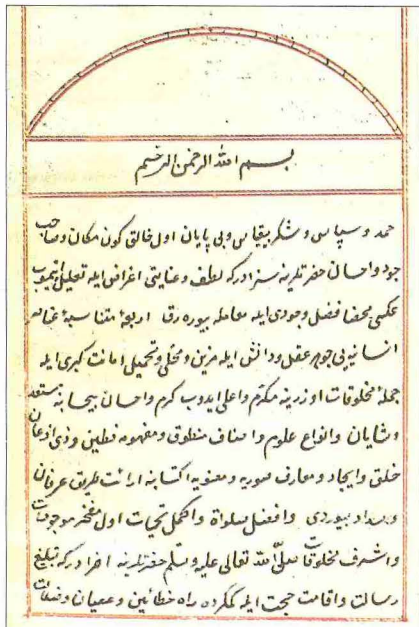 بسم الله الرحمن الرحيم
حمد و سپاس و شكر بيقياس و بى پايان اول خالق كون مكان و صاحب
جود و احسان حضرتلرينه سزادركه لطف و عنايتى اغراض ايله تعليل اتميوب
عكسى محضا فضل وجودى ايله معامله بيوره رق اربعۀ متناسبۀ عناصر
انسانيه يى جوهر عقل و دانش ايله مزين و محلى و تحميل امانت كبرى ايله
جملۀ مخلوقات اوزرينه مكرم و اعلى ايدوب كرم و احسان بيحسابنه مستعد
و شايان و انواع علوم و اصناف منطوق و مفهومه فطين و ذى اذعان
خلق و ايجاد و معارف صوريه و معنويه اكتسابنه ارائت طريق عرفان
و سداد بيوردى و افضل صلواة و اكمل تحيات اول مفخر موجودات
و اشرف مخلوقات صلى الله تعالى عليه و سلم حضرتلرينه احرادركه تبليغ
رسالت و اقامت حجت ايله كمكرده راه خطائين و عصيان و ضلالت